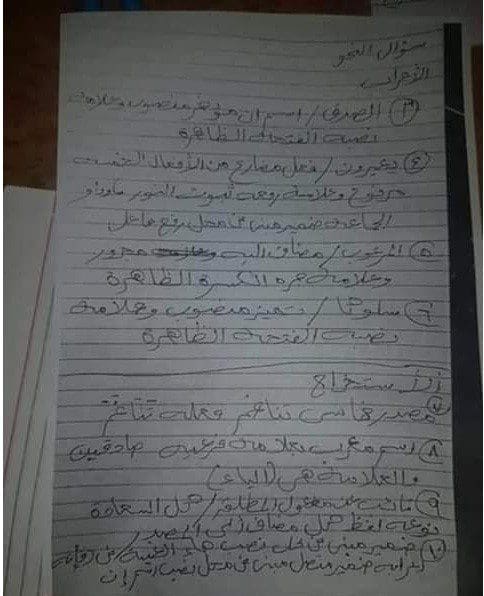 سؤال النحو
الإعراب
٣) الصدق / اسم ان مؤخر منصوب وعلامة
نصبه الفتحة الظاهرة
٤) / فعل مضارع من الأفعال الخمسة
مرفوع وعلامة رفعه ثبوت النون واو
الجماعة ضمير مبنى فى محل رفع فاعل
٥) المرغوب / مضاف اليه مجرور
وعلامة جره الكسرة الظاهرة
٦) سلوكا / تمييز منصوب وعلامة
نصبه الفتحة الظاهرة
الاستخراج
٧) مصدر خماسى تناغم فعله تناغم
٨) اسم معرب بعلامة فرعية صادقين
والعلامة هى (الياء)
٩) نائب عن مفعول المطلق / كل السعادة
نوعه لفظ كل مضاف إلى المصدر
١٠) ضمير مبنى فى محل نصب هاء الغيبة فى
إعرابه ضمير متصل مبنى فى محل نصب اسم إن